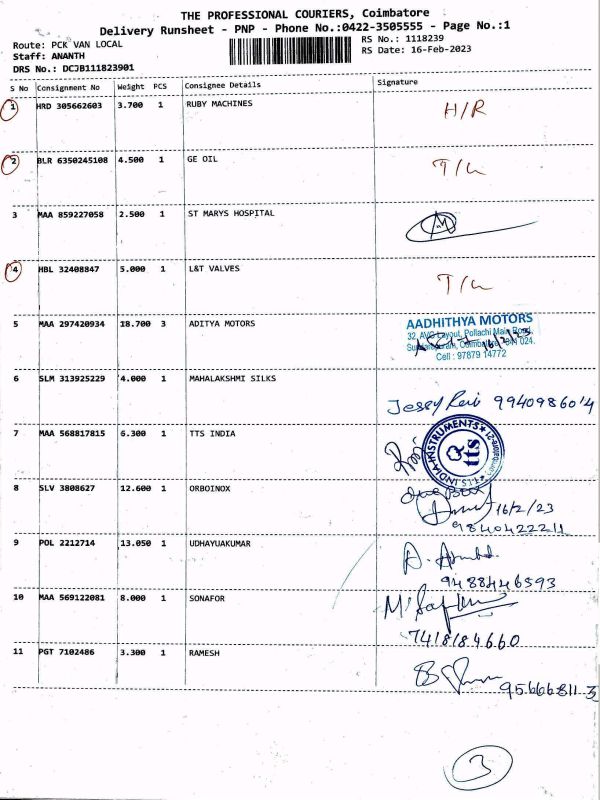 THE PROFESSIONAL COURIERS, Coimbatore
Delivery Runsheet - PNP - Phone No.:0422-3505555 - Page No.:1
Route: PCK VAN LOCAL
RS No.: 1118239
Staff: ANANTH
RS Date: 16-Feb-2023
DRS No.: DCJB111823901
S No Consignment No Weight PCS Consignee Details Signature
1 HRD 305662603 3.700 1 RUBY MACHINES H/R
2 BLR 6350245108 4.500 1 GE OIL T/L
3 MAA 859227058 2.500 1 ST MARYS HOSPITAL
4 HBL 32408847 5.000 1 L&T VALVES T/L
5 MAA 297420934 18.700 3 ADITYA MOTORS
AADHITHYA MOTORS
32, AVG Layout, Pollachi Main Road,
Coimbatore 641 024.
16/2/23
Cell : 97879 14772
6 SLM 313925229 4.000 1 MAHALAKSHMI SILKS
7 MAA 568817815 6.300 1 TTS INDIA
INSTRUMENTS
tts
8 SLV 3808627 12.600 1 ORBOINOX
16/2/23
9840422211
9 POL 2212714 13.050 1 UDHAYUAKUMAR
9488446593
10 MAA 569122081 8.000 1 SONAFOR
7418184660
11 PGT 7102486 3.300 1 RAMESH
3